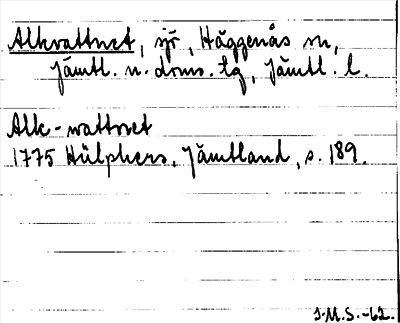 Alkvattnet, sjö, Häggenås sn,
Jämtl. n. doms. tg, Jämtl. l.
Alk-wattnet
1775 Hülphers, Jämtland, s. 189.
I.M.S.-62.